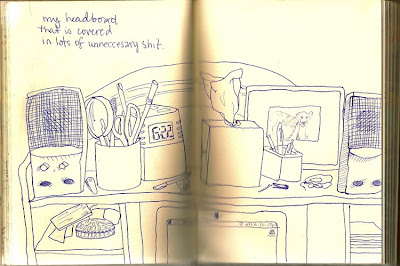 my headboard
that is covered
in lots of unneccesary shit.
6:32